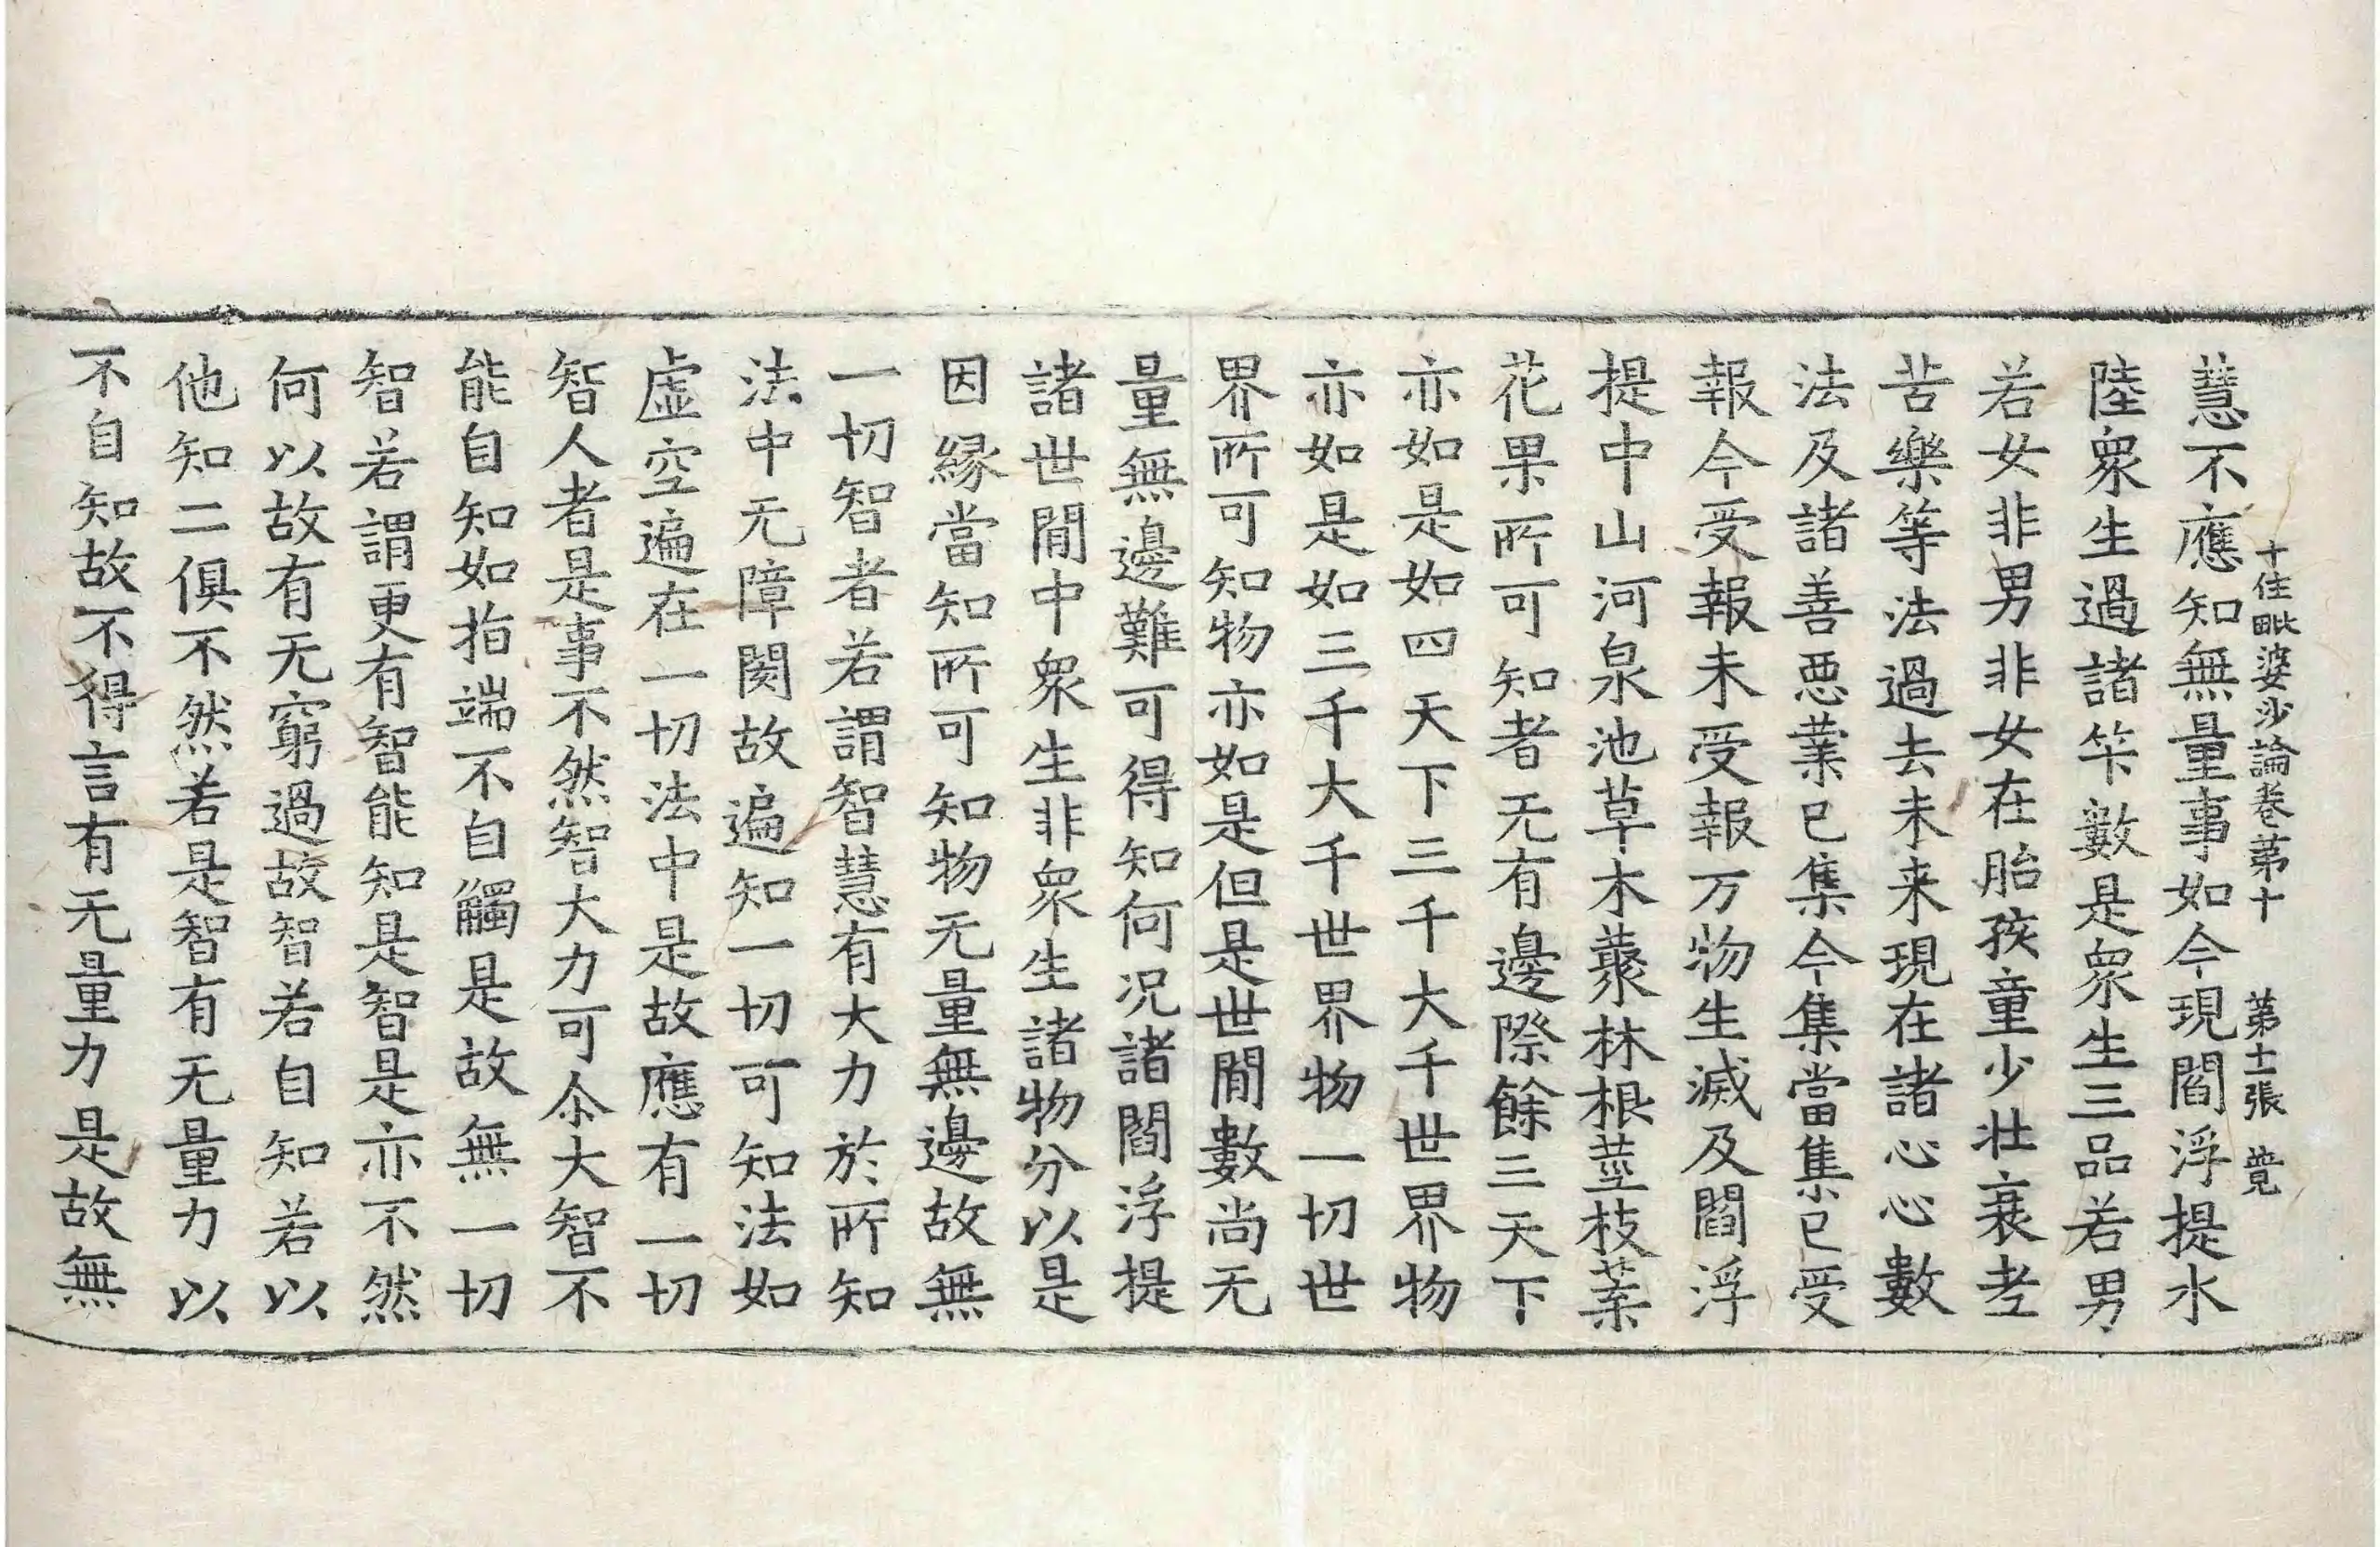 十住毗婆沙論卷第十　第十二張　覺
慧不應知無量事如今現閻浮提水
陸衆生過諸筭數是衆生三品若男
若女非男非女在胎孩童少壯衰老
苦樂等法過去未来現在諸心心數
法及諸善惡業已集今集當集已受
報今受報未受報万物生滅及閻浮
提中山河泉池草木藂林根莖枝葉
花果所可知者无有邊際餘三天下
亦如是如四天下三千大千世界物
亦如是如三千大千世界物一切世
界所可知物亦如是但是世間數尚无
量無邊難可得知何况諸閻浮提
諸世間中衆生非衆生諸物分以是
因緣當知所可知物无量無邊故無
一切智者若謂智慧有大力於所知
法中无障閡故遍知一切可知法如
虛空遍在一切法中是故應有一切
智人者是事不然智大力可尒大智不
能自知如指端不自觸是故無一切
智若謂更有智能知是智是亦不然
何以故有无窮過故智若自知若以
他知二俱不然若是智有无量力以
不自知故不得言有无量力是故無